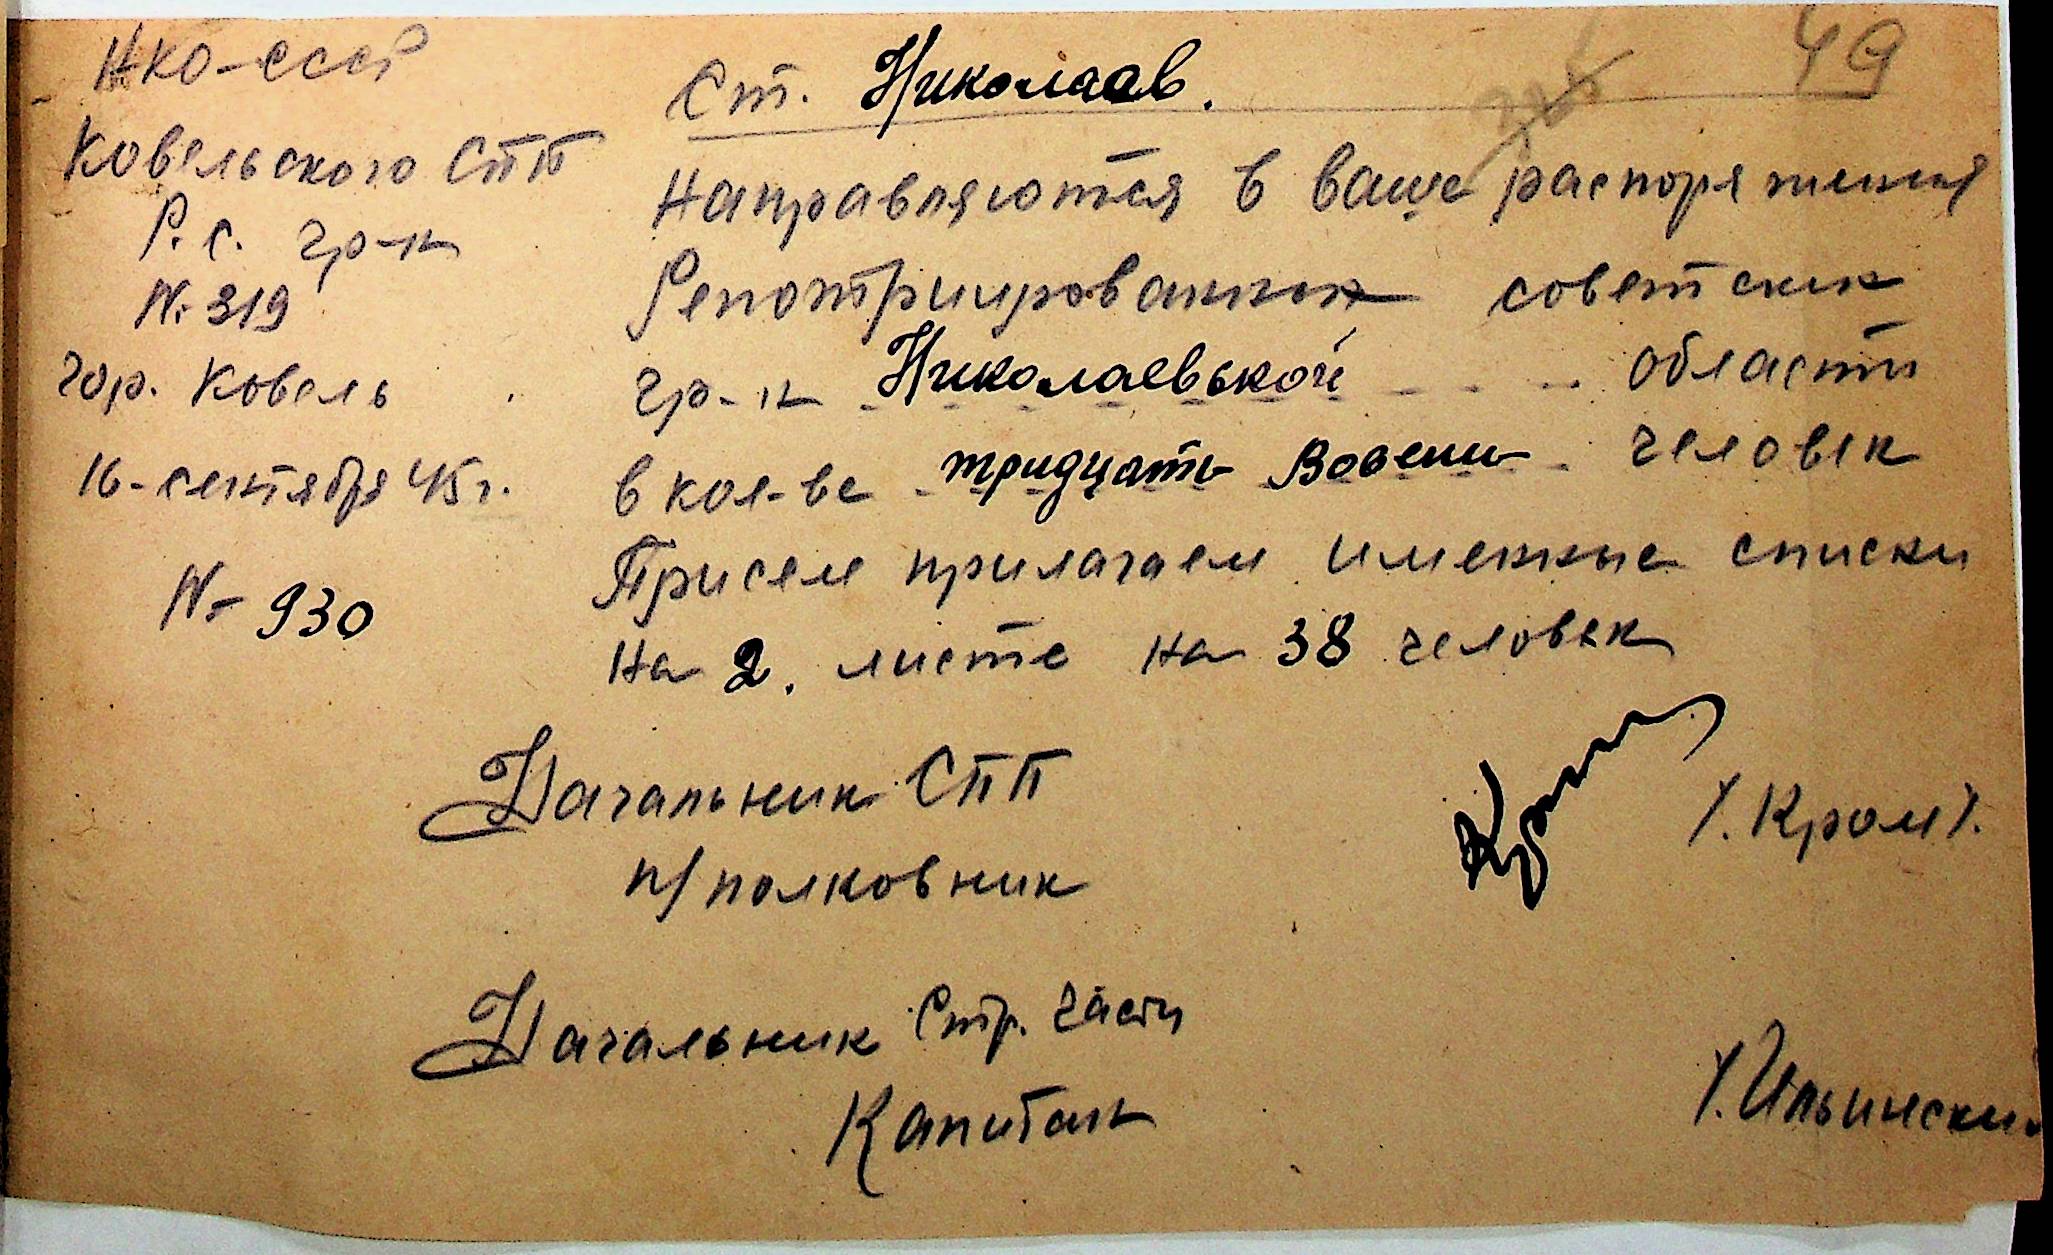 НКО-СССР
Ковельского СПП
Р.С. гр-н
№ 319
гор. Ковель
16-сентября 45 г.
№ 930
49
Ст. Николаев.
Направляются в ваше распоряжения
Репотриированных советских
гр-н Николаевьской области
в кол-ве тридцать Восемь человек
Присем прилагаем именные списки
на 2. листе на 38 человек
Начальник СПП
п/полковник
/. Кром /.
Начальник Стр. части
Капитан
/. Ильински